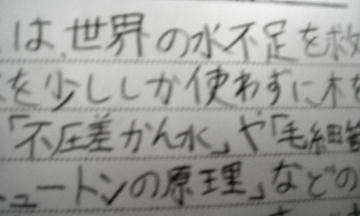 は、世界の水不足を救
を少ししか使わずに木を
「不圧差かん水」や「毛細管
ュートンの原理」などの